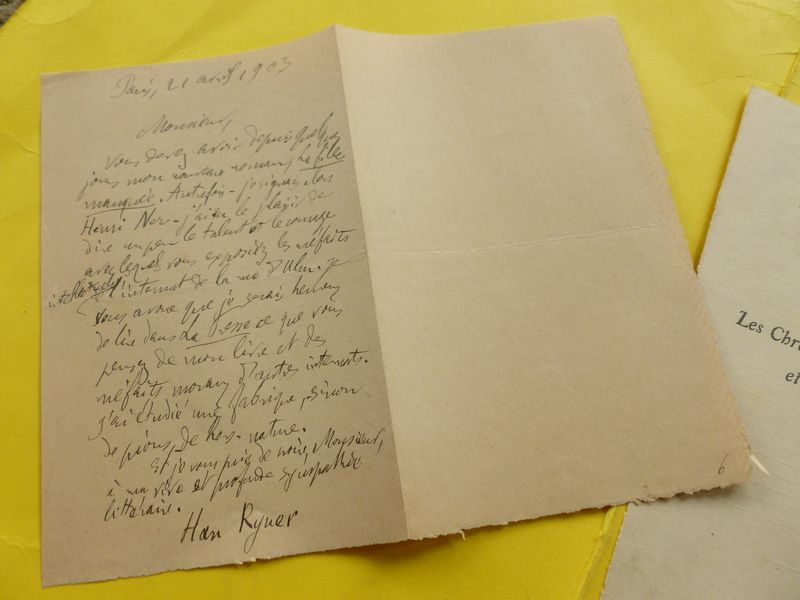 Paris, 21 avril 1903
Monsieur,
Vous devez avoir depuis quelques
jours mon nouveau roman, La fille
manquée. Autrefois - je signais alors
Henri Ner - j'ai eu le plaisir de
dire un peu le talent et le courage
avec lesquels vous exposiez les méfaits
intellectuels
de l'internat de la rue d'Ulm. Je
vous avoue que je serais heureux
de lire dans La Presse ce que vous
pensez de mon livre et des
méfaits moraux d'autres internats.
J'ai étudié une fabrique, sinon
de pions, de hors-nature.
Et je vous prie de croire, Monsieur,
à ma vive et profonde sympathie
littéraire.
Han Ryner
6
Les Chr
et